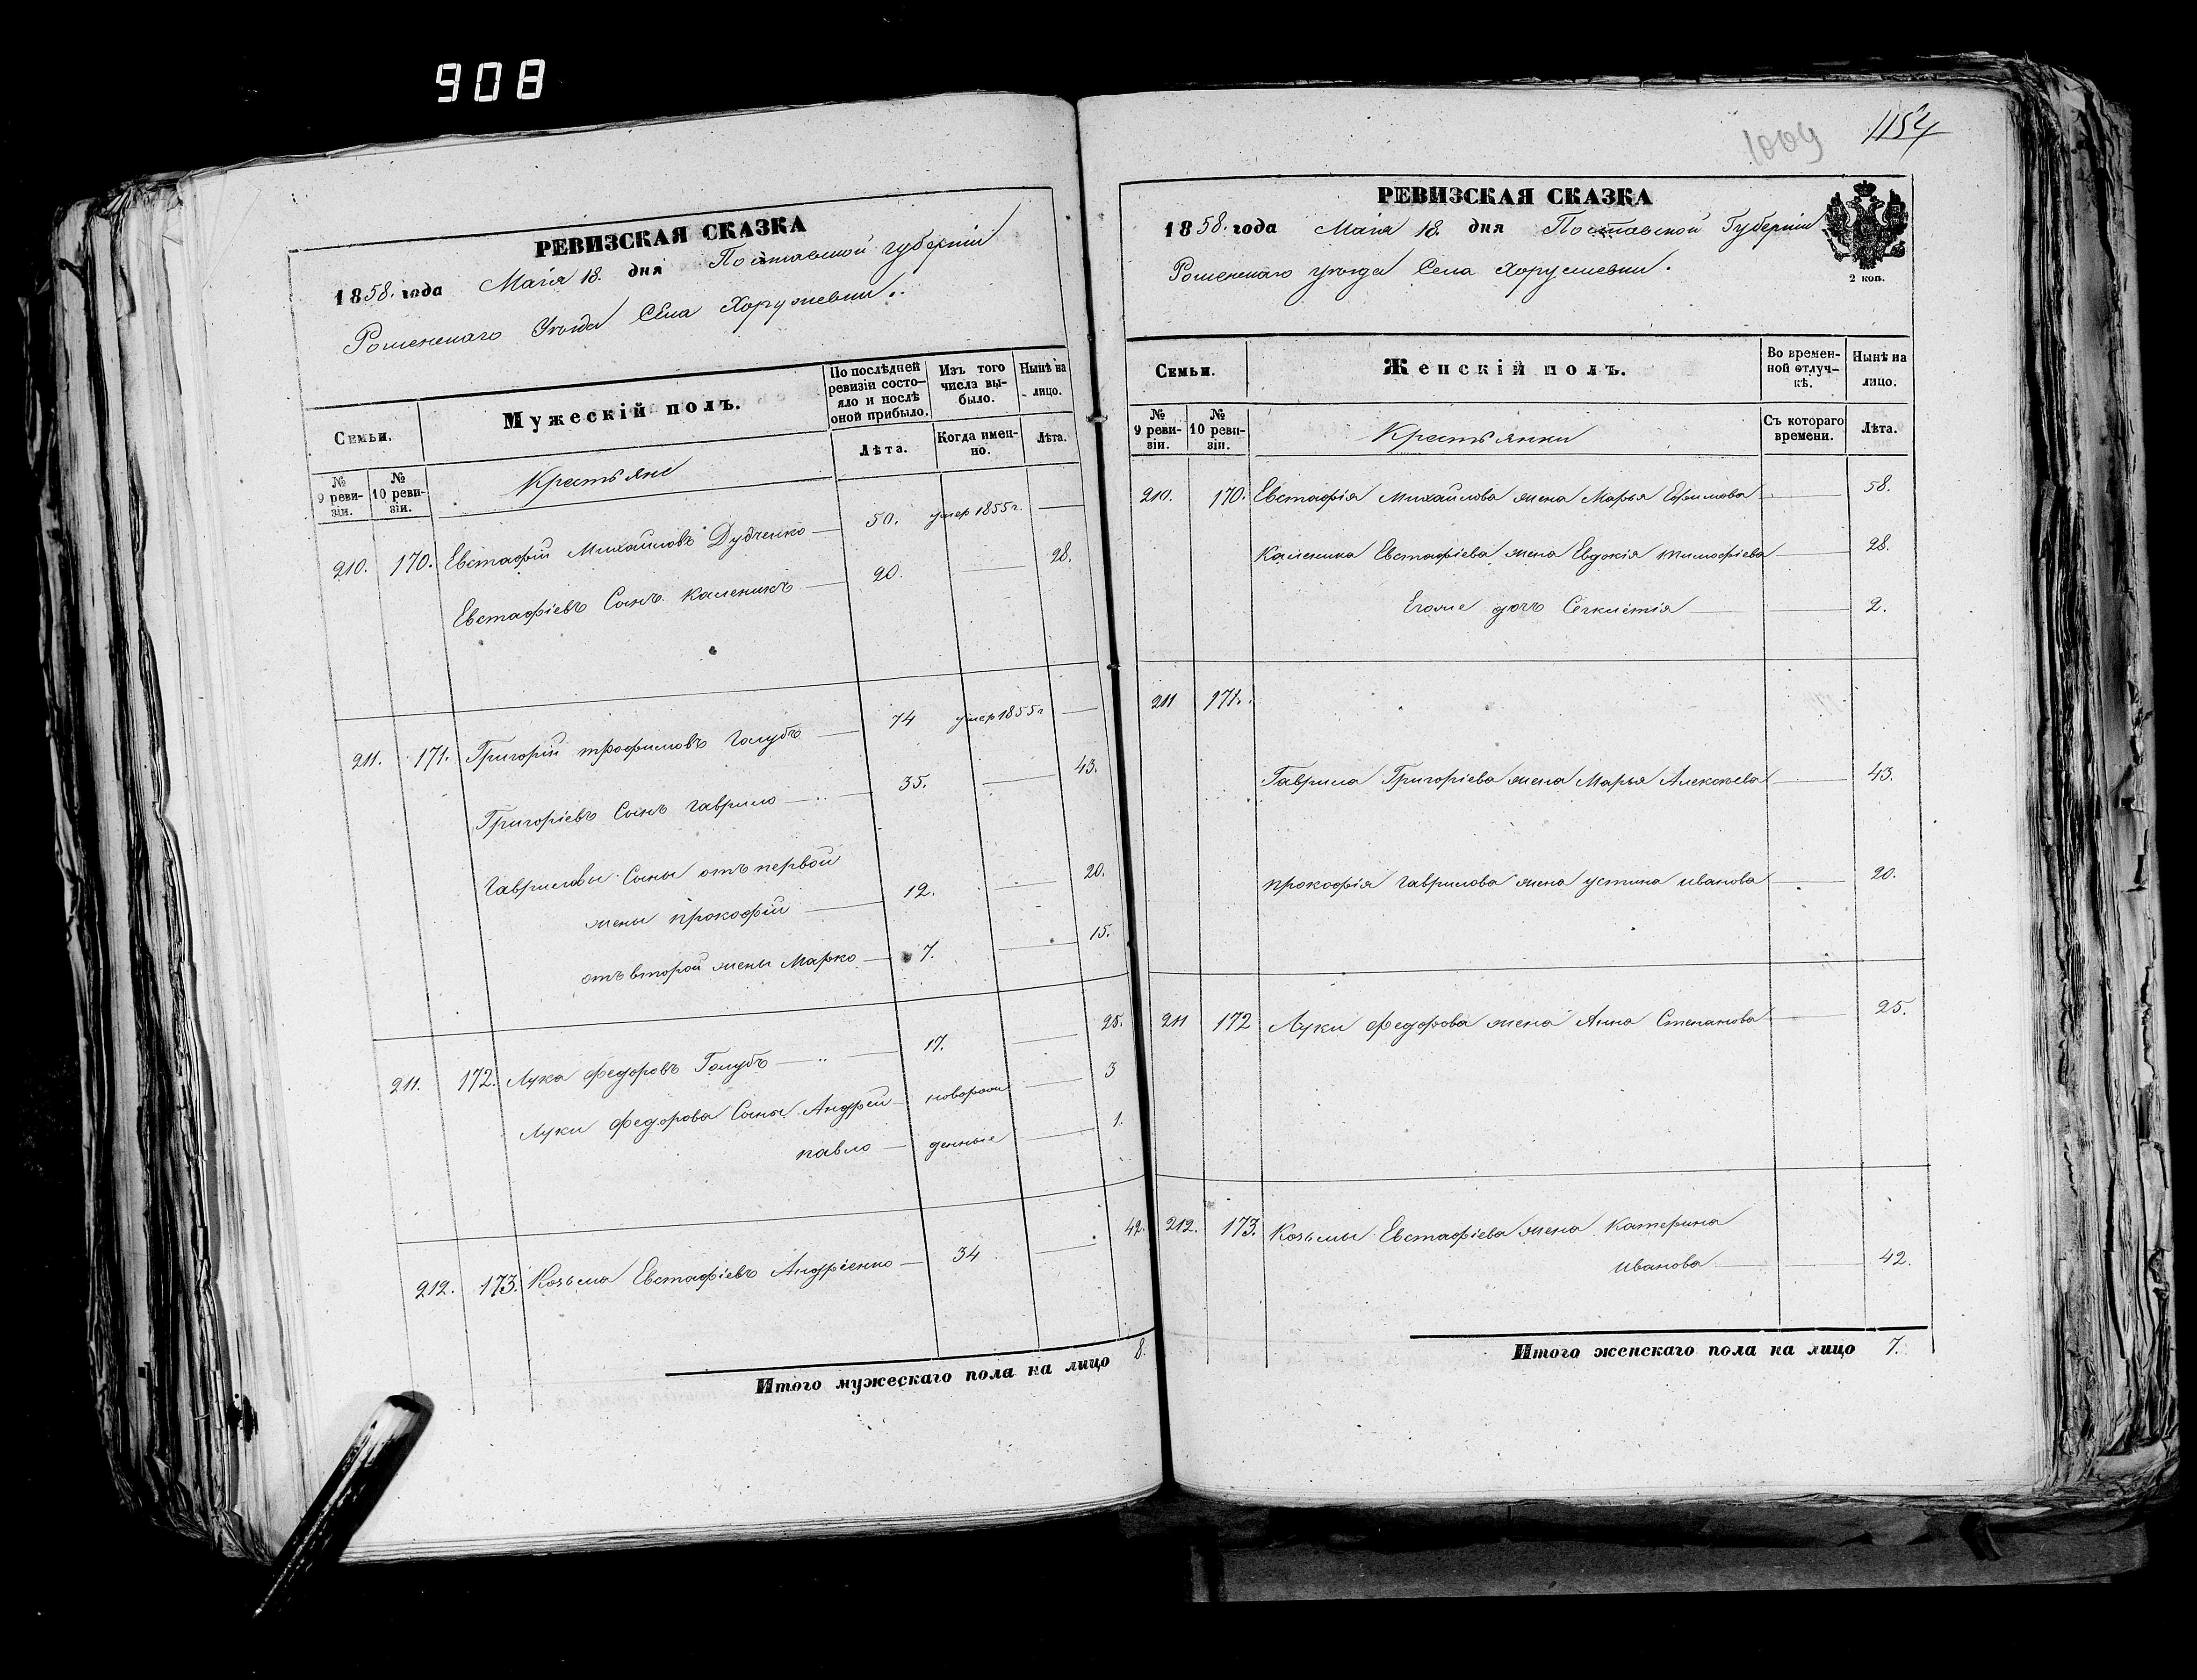 908
РЕВИЗСКАЯ СКАЗКА
1858. года Маія 18. дня Полтавской губерніи
Роменскаго Уѣзда Села Хоружевки.
Семьи.
Мужескій полъ.
По послѣдней ревизіи состояло и послѣ оной прибыло.
Изъ того числа выбыло.
Нынѣ на лицо.
№ 9 ревизіи.
№ 10 ревизіи.
Крестьяне
Лѣта.
Когда именно.
Лѣта.
210. 170. Евстафій Михайловъ Дудченко — 50. умер 1855 г. —
Евстафіевъ Сынъ Каленикъ — 20. — 28.
211. 171. Григорій трофимовъ Голубъ — 74 умер 1855 г —
Григоріевъ Сынъ гаврило — 35. — 43.
Гавриловы Сыны отъ первой
жены прокофій — 12. — 20.
отъ второй жены Марко — 7. — 15.
211. 172. Лука федоровъ Голубъ — 17. — 25.
Луки федорова Сыны Андрей — новорож — 3
павло — денные — 1.
212. 173. Козьма Евстафіевъ Андріенко — 34 — 42.
Итого мужескаго пола на лицо 8.
1009
1154
РЕВИЗСКАЯ СКАЗКА
1858. года Маія 18. дня Полтавской Губерніи
Роменскаго уѣзда Села Хоружевки.
2 коп.
Семьи.
Женскій полъ.
Во временной отлучкѣ.
Нынѣ на лицо.
№ 9 ревизіи.
№ 10 ревизіи.
Крестьянки
Съ котораго времени.
Лѣта.
210. 170. Евстафія Михайлова жена Марья Ефимова — 58.
Каленика Евстафіева жена Евдокія тимофіева — 28.
Егоже дочь — 2.
211 171.
Гаврила Григоріева жена Марья Алексѣева — 43.
прокофія гаврилова жена устина иванова — 20.
211 172 Луки федорова жена Анна Степанова — 25.
212. 173. Козьмы Евстафіева жена Катерина
иванова — 42.
Итого женскаго пола на лицо 7.